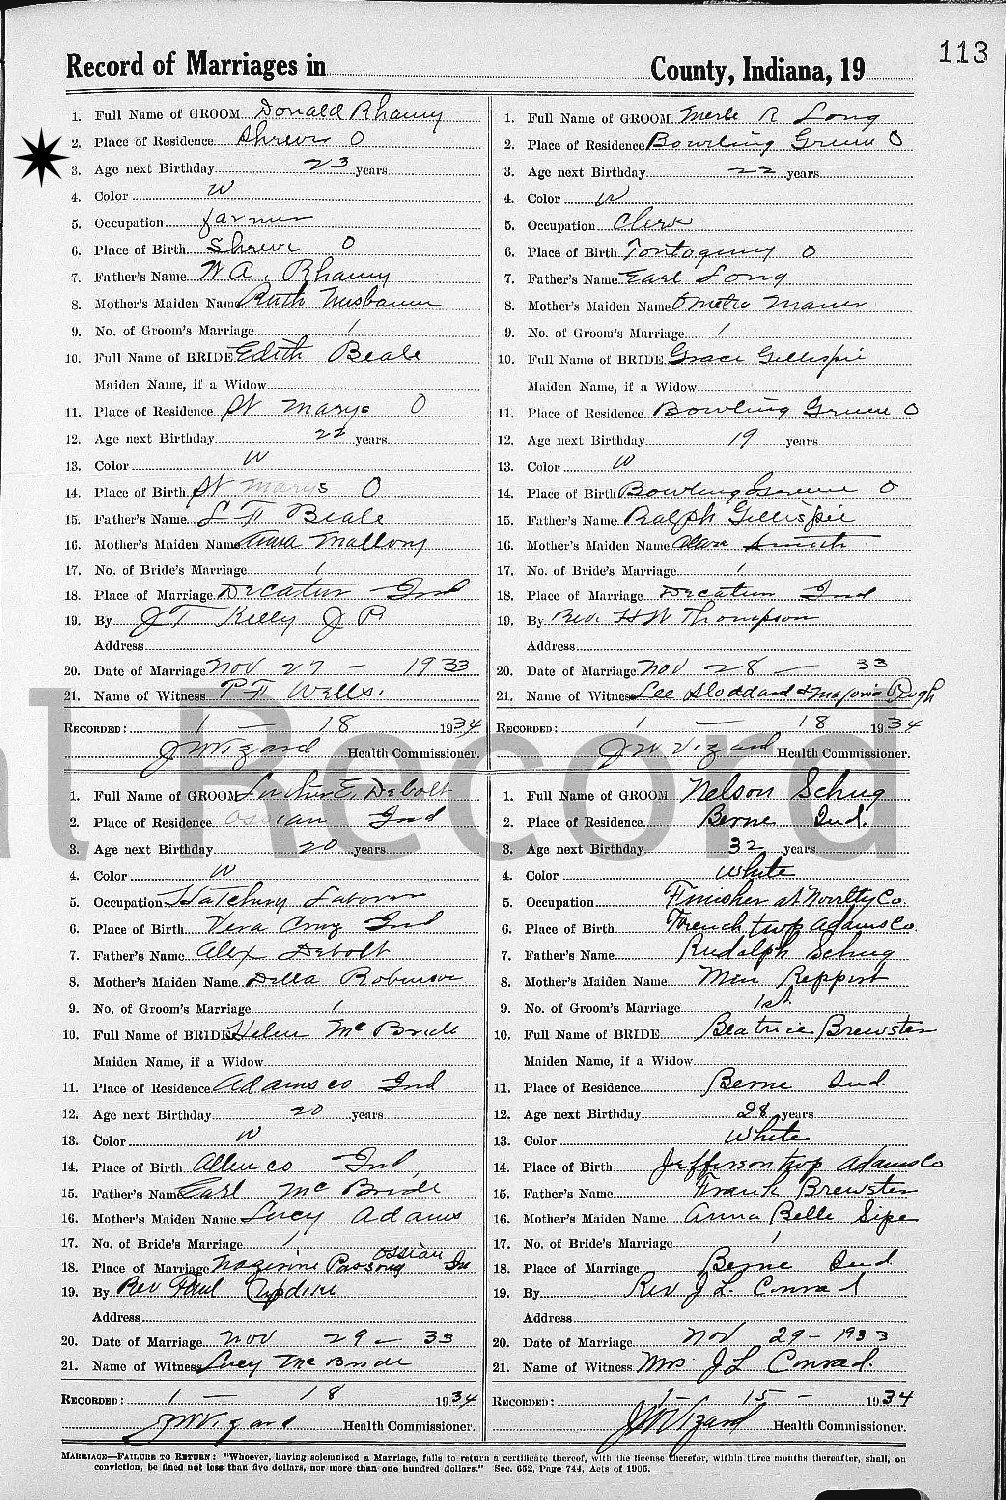 113
Record of Marriages in County, Indiana, 19
1. Full Name of GROOM Donald Rhamy
2. Place of Residence Shreve O
3. Age next Birthday 23 years
4. Color W
5. Occupation farmer
6. Place of Birth Shreve O
7. Father's Name W A. Rhamy
8. Mother's Maiden Name Ruth Nusbaum
9. No. of Groom's Marriage 1
10. Full Name of BRIDE Edith Beale
Maiden Name, if a Widow
11. Place of Residence St Marys O
12. Age next Birthday 22 years
13. Color W
14. Place of Birth St Marys O
15. Father's Name L F Beale
16. Mother's Maiden Name Mallory
17. No. of Bride's Marriage 1
18. Place of Marriage Decatur Ind
19. By J T Kelly J P
Address
20. Date of Marriage Nov 27 - 1933
21. Name of Witness P F Wells.
RECORDED: 1 - 18 1934
J W Vizard Health Commissioner.
1. Full Name of GROOM Merle R Long
2. Place of Residence Bowling Green O
3. Age next Birthday 22 years
4. Color W
5. Occupation Clerk
6. Place of Birth Tontogany O
7. Father's Name Earl Long
8. Mother's Maiden Name
9. No. of Groom's Marriage 1
10. Full Name of BRIDE Grace Gillispie
Maiden Name, if a Widow
11. Place of Residence Bowling Green O
12. Age next Birthday 19 years
13. Color W
14. Place of Birth Bowling Green O
15. Father's Name Ralph Gillispie
16. Mother's Maiden Name Smith
17. No. of Bride's Marriage 1
18. Place of Marriage Decatur Ind
19. By Rev. H W Thompson
Address
20. Date of Marriage Nov 28 - 33
21. Name of Witness Lee Stoddard & Marjorie
RECORDED: 1 - 18 1934
J W Vizard Health Commissioner.
1. Full Name of GROOM Luther E. Debolt
2. Place of Residence Ossian Ind
3. Age next Birthday 20 years
4. Color W
5. Occupation Hatchery Laborer
6. Place of Birth Vera Cruz Ind
7. Father's Name Alex Debolt
8. Mother's Maiden Name Della Robinson
9. No. of Groom's Marriage 1
10. Full Name of BRIDE Helen McBride
Maiden Name, if a Widow
11. Place of Residence Adams co Ind
12. Age next Birthday 20 years
13. Color W
14. Place of Birth Allen co Ind,
15. Father's Name Earl McBride
16. Mother's Maiden Name Lucy Adams
17. No. of Bride's Marriage 1
18. Place of Marriage Nazerine Parsonag Ossian In
19. By Rev Paul Updike
Address
20. Date of Marriage Nov 29 - 33
21. Name of Witness Lucy McBride
RECORDED: 1 - 18 1934
J W Vizard Health Commissioner.
1. Full Name of GROOM Nelson Schug
2. Place of Residence Berne Ind.
3. Age next Birthday 32 years
4. Color White
5. Occupation Finisher at Novelty Co.
6. Place of Birth French twp Adams Co.
7. Father's Name Rudolph Schug
8. Mother's Maiden Name Min Reppert
9. No. of Groom's Marriage 1st
10. Full Name of BRIDE Beatrice Brewster
Maiden Name, if a Widow
11. Place of Residence Berne Ind
12. Age next Birthday 28 years
13. Color White
14. Place of Birth Jefferson twp Adams Co
15. Father's Name Frank Brewster
16. Mother's Maiden Name Anna Belle Sipe
17. No. of Bride's Marriage 1
18. Place of Marriage Berne Ind
19. By Rev J L. Conrad
Address
20. Date of Marriage Nov 29 - 1933
21. Name of Witness Mrs J L Conrad.
RECORDED: 1 - 15 - 1934
J W Vizard Health Commissioner.
MARRIAGE—FAILURE TO RETURN: "Whoever, having solemnized a Marriage, fails to return a certificate thereof, with the license therefor, within three months thereafter, shall, on
conviction, be fined not less than five dollars, nor more than one hundred dollars." Sec. 652, Page 744, Acts of 1905.
l Record